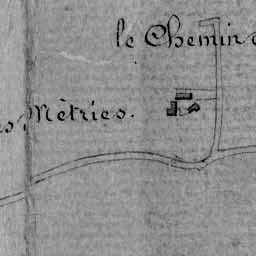 le Chemin
Mètries.